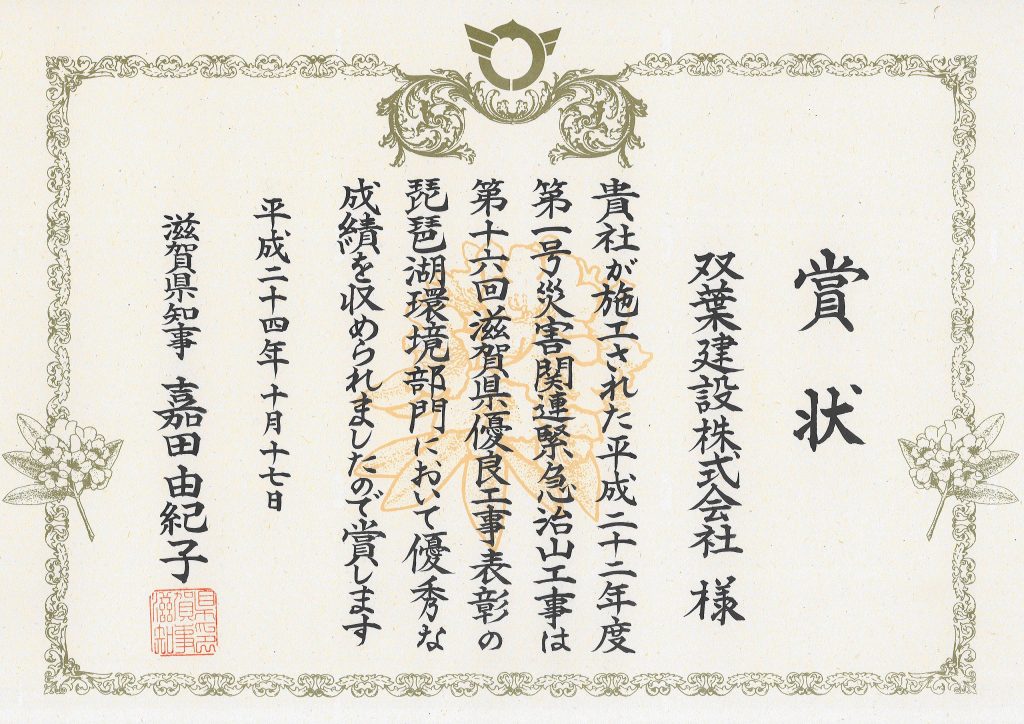 賞状
双葉建設株式会社 様
貴社が施工された平成二十二年度
第一号災害関連緊急治山工事は
第十六回滋賀県優良工事表彰の
琵琶湖環境部門において優秀な
成績を収められましたので賞します
平成二十四年十月十七日
滋賀県知事 嘉田由紀子